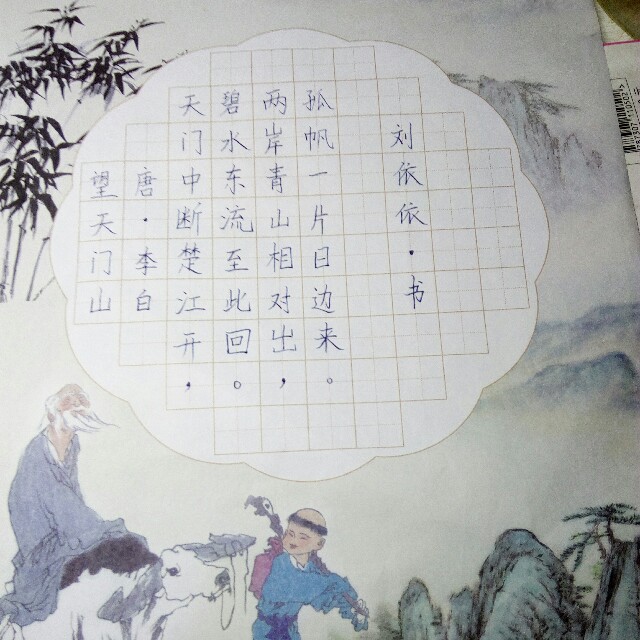 望天门山
唐·李白
天门中断楚江开，
碧水东流至此回。
两岸青山相对出，
孤帆一片日边来。
刘依依·书